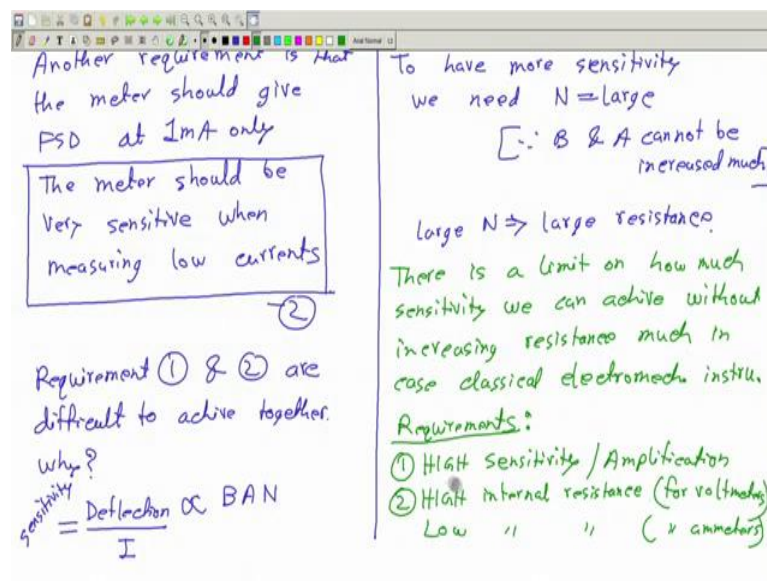 Another requirement is that
the meter should give
FSD at 1mA only
The meter should be
very sensitive when
measuring low currents
②
Requirement ① & ② are
difficult to achive together.
why?
sensitivity = Deflection / I ∝ BAN
To have more sensitivity
we need N = large
[∵ B & A cannot be
increased much
large N ⇒ large resistance
There is a limit on how much
sensitivity we can achive without
increasing resistance much in
case classical electromech. instru.
Requirements:
① HIGH Sensitivity / Amplification
② HIGH internal resistance (for voltmeters)
Low " " ( " ammeters)